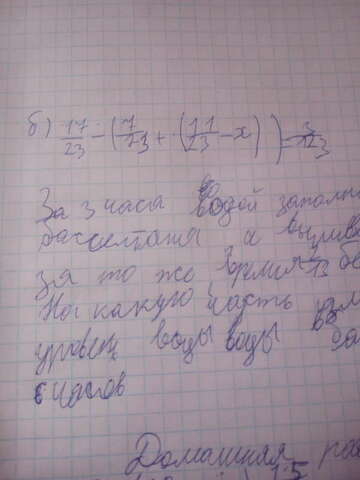 б) 17/23 - (7/23 + (11/23 - x)) = 3/23
За 3 часа водой заполн
бассейна а вылив
за то же время
На какую часть
уровень воды воды
6 часов
Домашняя раб